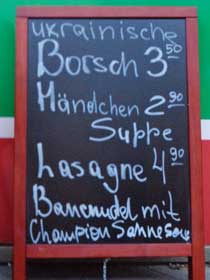 ukrainische
Borsch 3 50
Händlchen 2 90
Suppe
Lasagne 4 90
Bannudel mit
Champion Sahnesoue